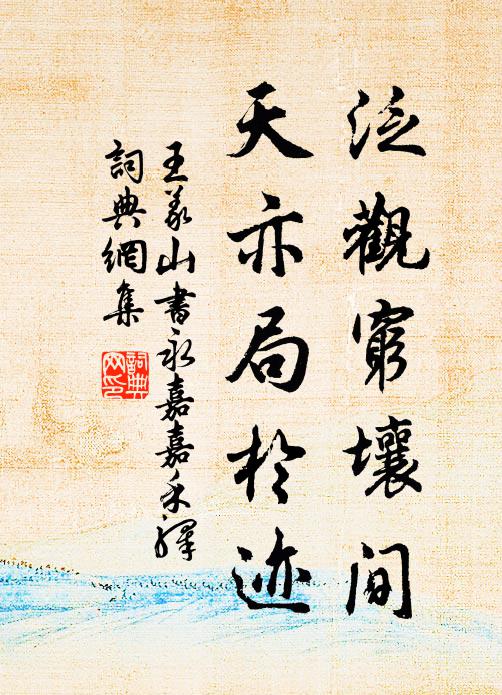 泛觀窮壤間
天亦局於迹
王義山書永嘉嘉禾驛
詞典網集
詞典
网印